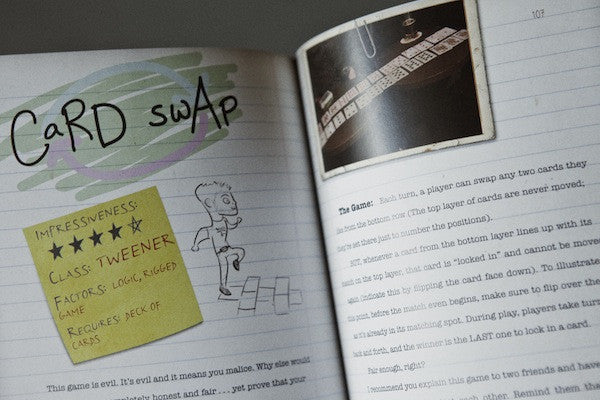 CaRD swAp
IMPRESSIVENESS:
★★★★☆
CLASS: TWEENER
FACTORS: LOGIC, RIGGED
GAME
REQUIRES: DECK OF
CARDS
This game is evil. It's evil and it means you malice. Why else would
completely honest and fair . . . yet prove that your
107
The Game: Each turn, a player can swap any two cards they
like from the bottom row (The top layer of cards are never moved;
they're set there just to number the positions).
BUT, whenever a card from the bottom layer lines up with its
match on the top layer, that card is "locked in" and cannot be moved
again (indicate this by flipping the card face down). To illustrate
this point, before the match even begins, make sure to flip over the
already in its matching spot. During play, players take turns
back and forth, and the winner is the LAST one to lock in a card.
Fair enough, right?
I recommend you explain this game to two friends and have
each other. Remind them that